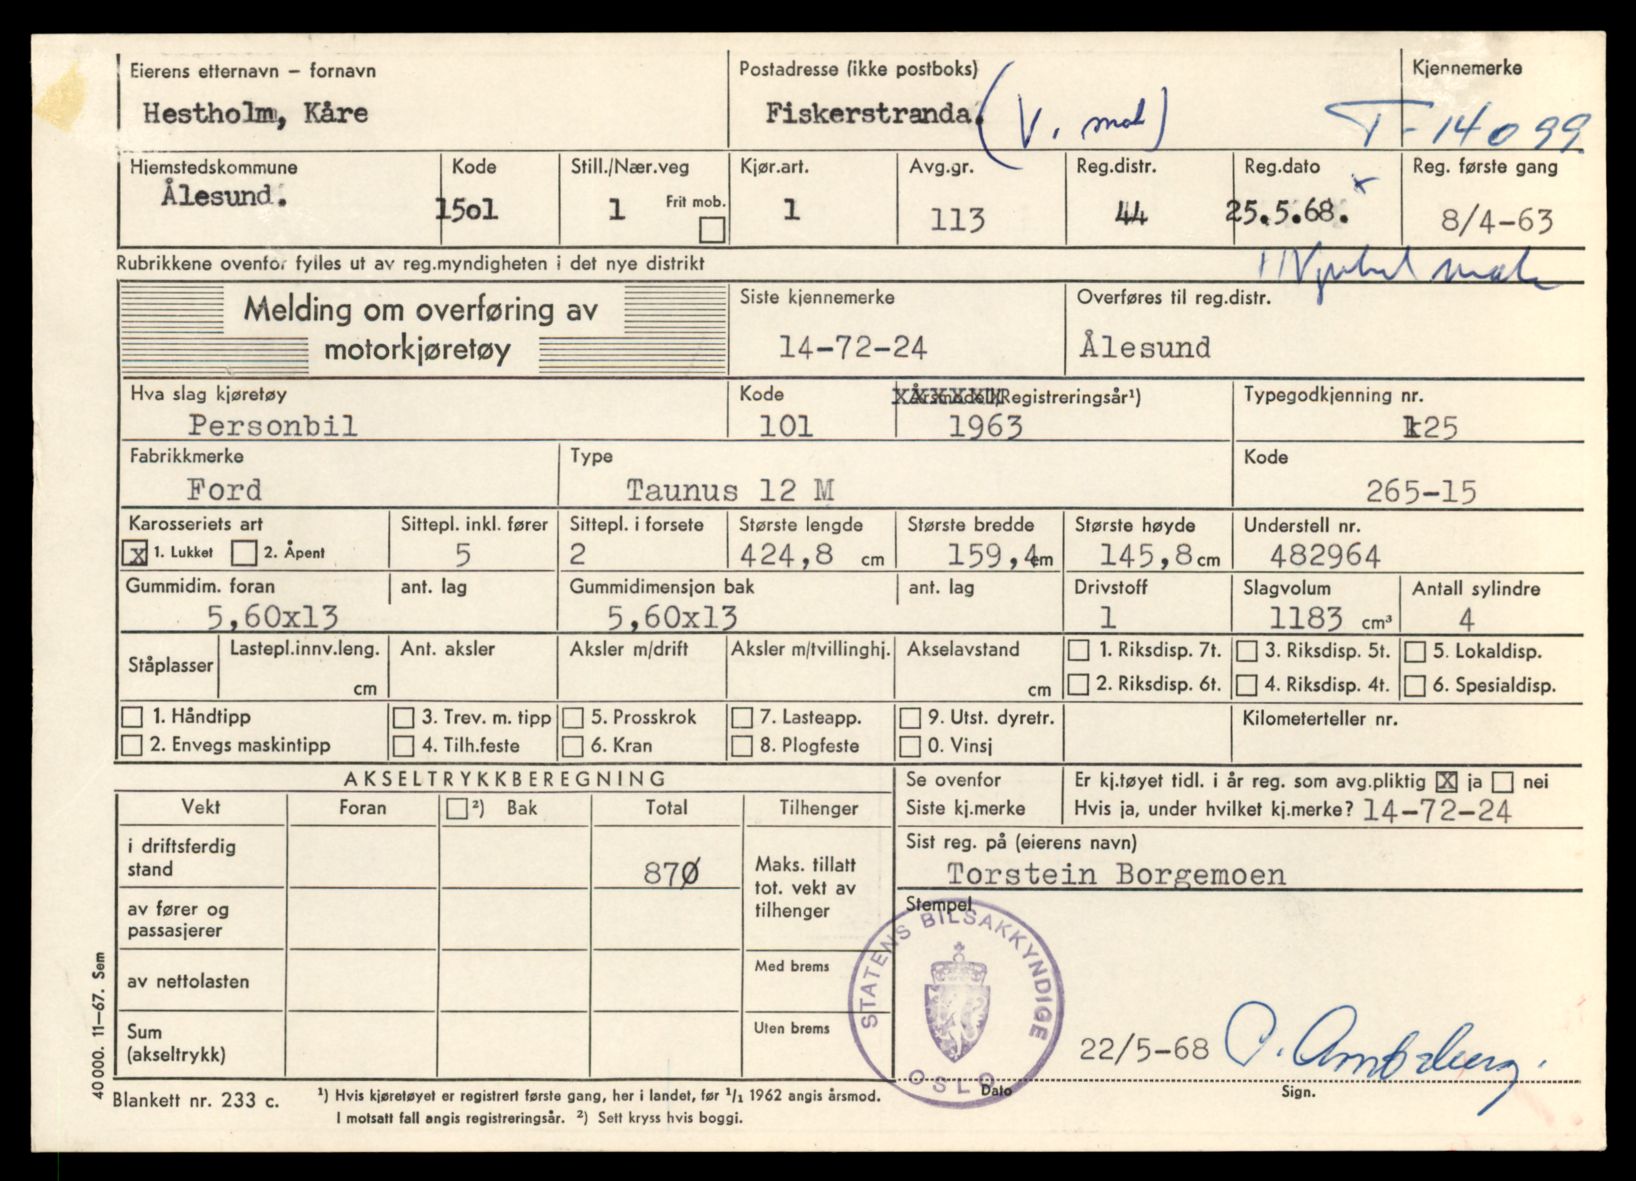 Eierens etternavn – fornavn Postadresse (ikke postboks) Kjennemerke
Hestholm, Kåre Fiskerstranda. (V. T-14099
Hjemstedskommune Kode Still./Nær.veg Kjør.art. Avg.gr. Reg.distr. Reg.dato Reg. første gang
Ålesund. 1501 1 Frit mob. 1 113 44 25.5.68. x 8/4-63
Rubrikkene ovenfor fylles ut av reg.myndigheten i det nye distrikt
Melding om overføring av
motorkjøretøy
Siste kjennemerke Overføres til reg.distr.
14-72-24 Ålesund
Hva slag kjøretøy Kode Årsmodell/Registreringsår¹) Typegodkjenning nr.
Personbil 101 1963 125
Fabrikkmerke Type Kode
Ford Taunus 12 M 265-15
Karosseriets art Sittepl. inkl. fører Sittepl. i forsete Største lengde Største bredde Største høyde Understell nr.
x 1. Lukket 2. Åpent 5 2 424,8 cm 159,4 cm 145,8 cm 482964
Gummidim. foran ant. lag Gummidimensjon bak ant. lag Drivstoff Slagvolum Antall sylindre
5,60x13 5,60x13 1 1183 cm³ 4
Ståplasser Lastepl.innv.leng. cm Ant. aksler Aksler m/drift Aksler m/tvillinghj. Akselavstand cm 1. Riksdisp. 7t. 3. Riksdisp. 5t. 5. Lokaldisp.
2. Riksdisp. 6t. 4. Riksdisp. 4t. 6. Spesialdisp.
1. Håndtipp 3. Trev. m. tipp 5. Prosskrok 7. Lasteapp. 9. Utst. dyretr. Kilometerteller nr.
2. Envegs maskintipp 4. Tilh.feste 6. Kran 8. Plogfeste 0. Vinsj
AKSELTRYKKBEREGNING
Se ovenfor Er kj.tøyet tidl. i år reg. som avg.pliktig x ja nei
Vekt Foran ²) Bak Total Tilhenger
Siste kj.merke Hvis ja, under hvilket kj.merke? 14-72-24
i driftsferdig
stand 870
Maks. tillatt
tot. vekt av
tilhenger
Sist reg. på (eierens navn)
Torstein Borgemoen
av fører og
passasjerer
Stempel
STATENS BILSAKKYNDIGE
OSLO
av nettolasten Med brems
Sum
(akseltrykk) Uten brems
22/5-68
Dato Sign.
40 000. 11–67. Sem
Blankett nr. 233 c. ¹) Hvis kjøretøyet er registrert første gang, her i landet, før 1/1 1962 angis årsmod.
I motsatt fall angis registreringsår. ²) Sett kryss hvis boggi.